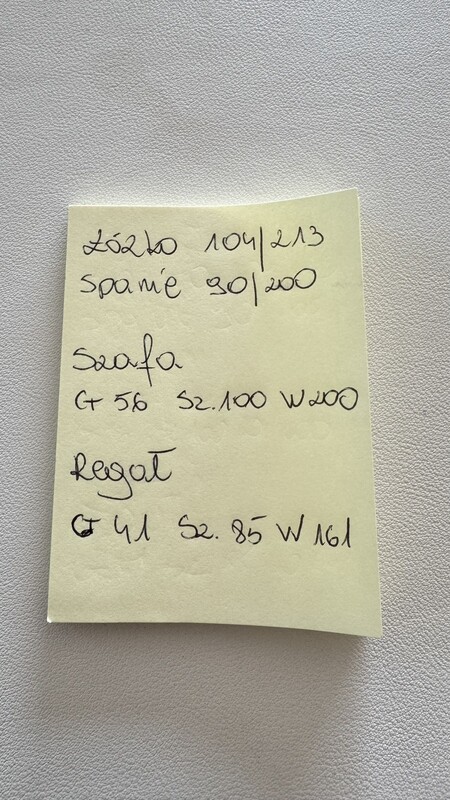 Łóżko 104/213
Spanie 90/200
Szafa
G 56 Sz. 100 W 200
Regał
G 41 Sz. 85 W 161